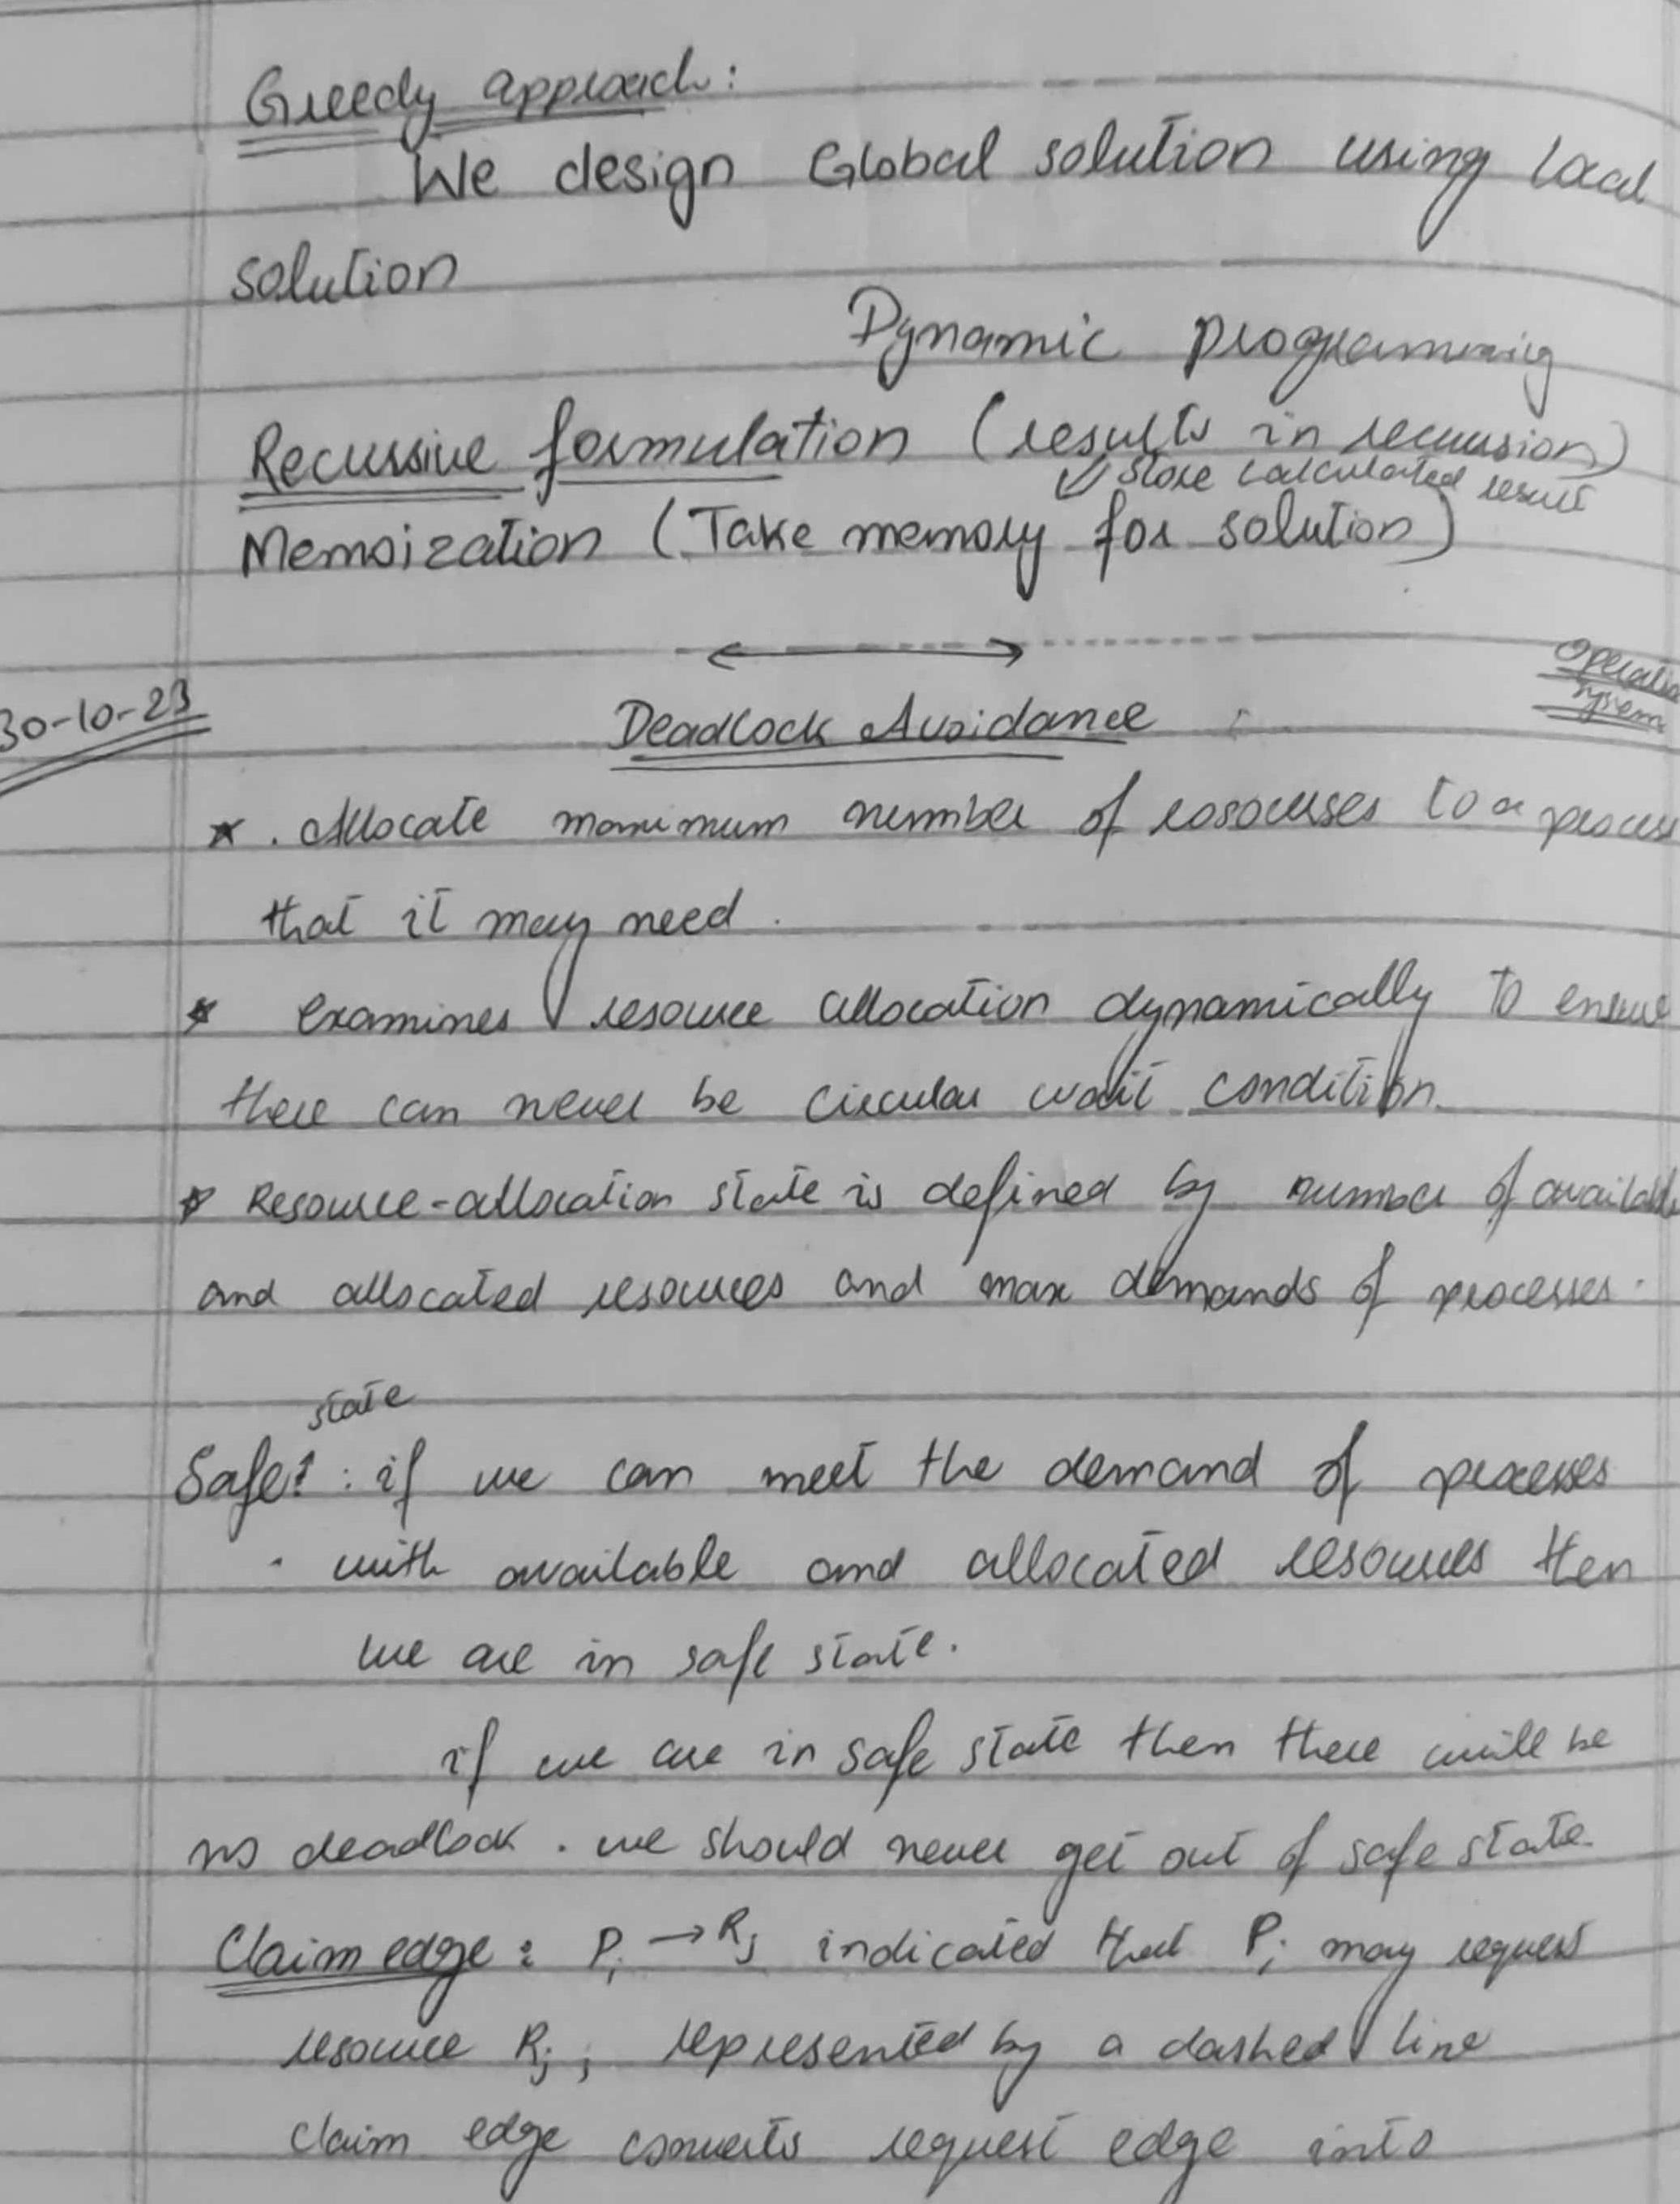 Greedy approach:
We design Global solution using local
solution
Dynamic programming
Recursive formulation (results in recursion)
Store calculated result
Memoization (Take memory for solution)
Operatin
System
30-10-23
Deadlock Avoidance :
* . Allocate maximum number of rosourses to a process
that it may need.
* examines resource allocation dynamically to ensure
there can never be circular wait condition.
* Resource-allocation state is defined by number of available
and allocated resources and max demands of processes.
state
Safe : if we can meet the demand of processes
with available and allocated resources then
we are in safe state.
if we are in safe state then there will be
no deadlock. we should never get out of safe state.
Claim edge : Pi → Rj indicated that Pi may request
resource Rj ; represented by a dashed line
claim edge converts request edge into